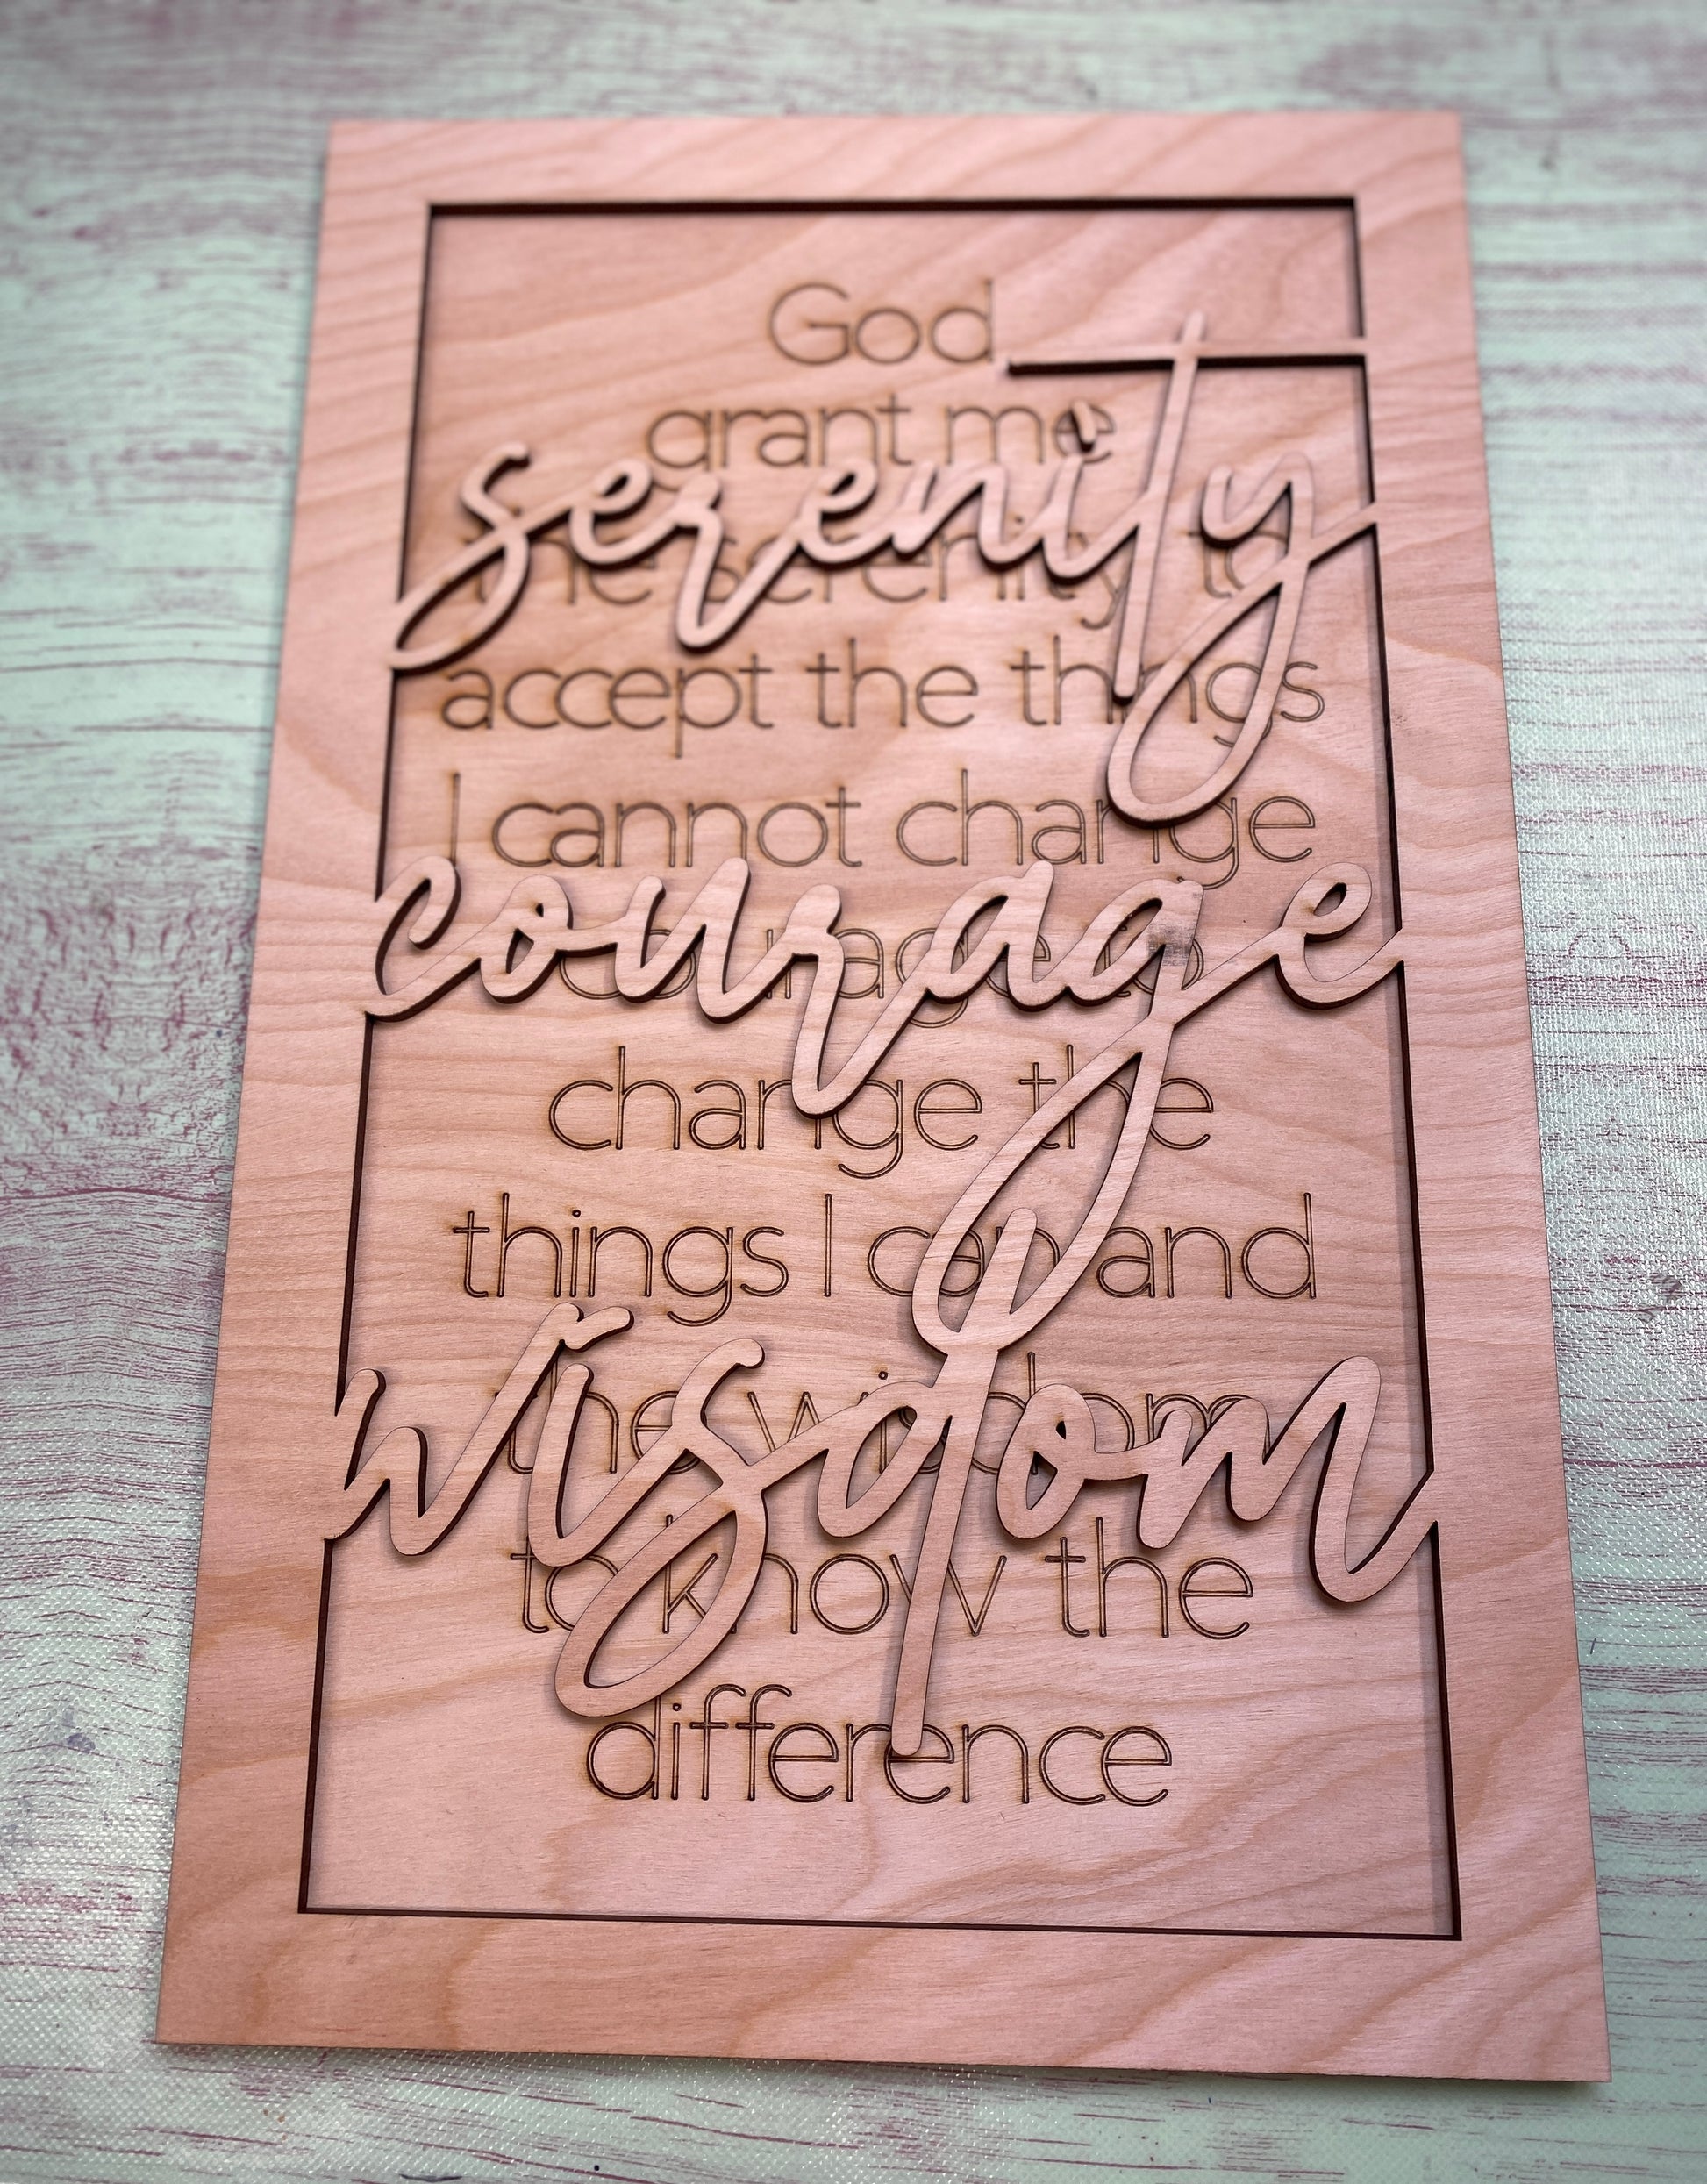 God
grant me
serenity
the serenity to
accept the things
I cannot change
courage
courage to
change the
things I can and
wisdom
the wisdom
to know the
difference